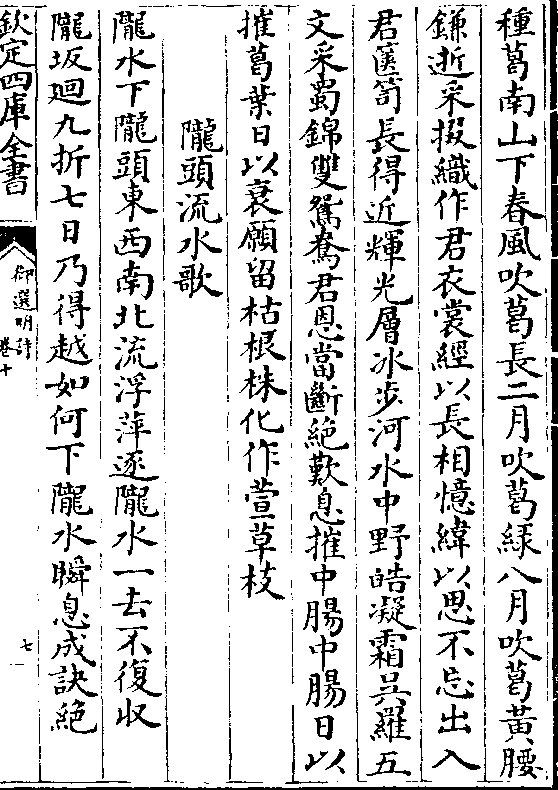 種葛南山下春風吹葛長二月吹葛緑八月吹葛黄腰
鎌逝采掇織作君衣裳經以長相憶緯以思不忘出入
君篋笥長得近輝光層冰歩河水中野皓凝霜吳羅五
文采蜀錦雙鴛鴦君恩當斷絶歎息摧中腸中腸日以
摧葛葉日以衰願留枯根株化作萱草枝
隴頭流水歌
隴水下隴頭東西南北流浮萍逐隴水一去不復收
隴坂廻九折七日乃得越如何下隴水瞬息成訣絶
欽定四庫全書
御選明詩
卷十
七